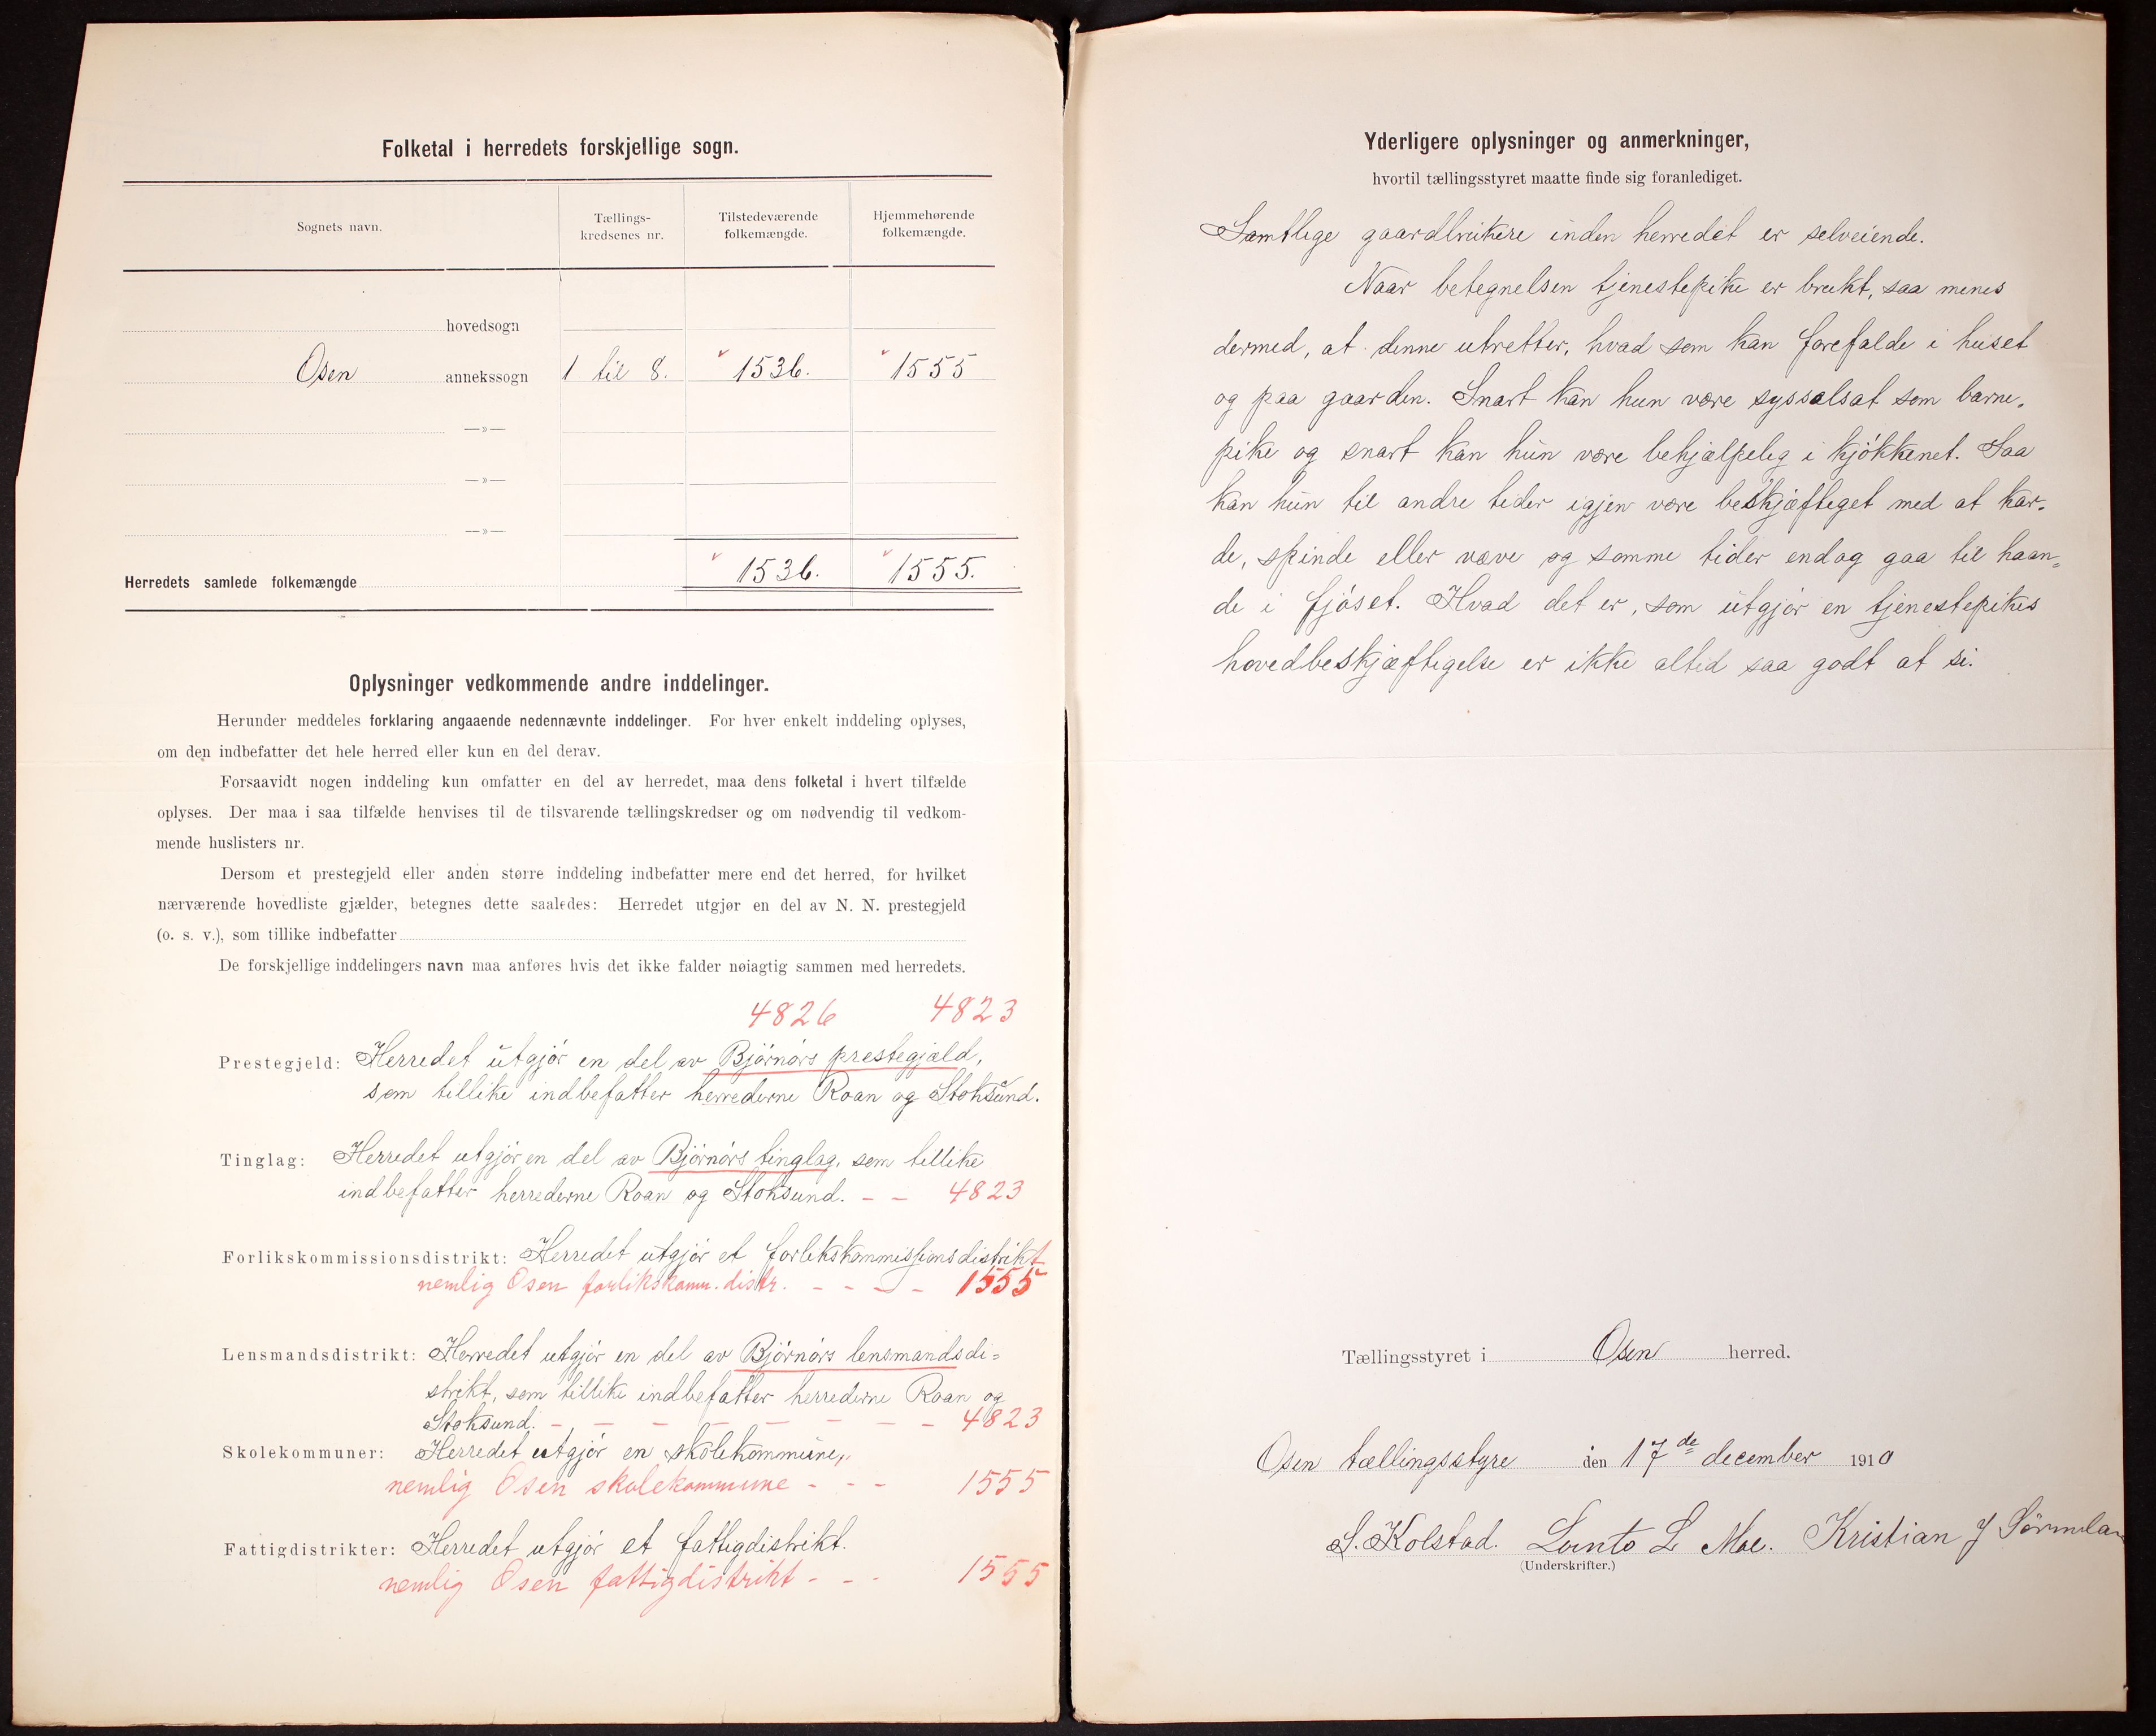 Folketal i herredets forskjellige sogn.
Sognets navn. Tællings-kredsenes nr. Tilstedeværende folkemængde. Hjemmehørende folkemængde.
hovedsogn
Osen annekssogn 1 til 8. 1536. 1555
—»—
—»—
—»—
Herredets samlede folkemængde 1536. 1555.
Oplysninger vedkommende andre inddelinger.
Herunder meddeles forklaring angaaende nedennævnte inddelinger. For hver enkelt inddeling oplyses,
om den indbefatter det hele herred eller kun en del derav.
Forsaavidt nogen inddeling kun omfatter en del av herredet, maa dens folketal i hvert tilfælde
oplyses. Der maa i saa tilfælde henvises til de tilsvarende tællingskredser og om nødvendig til vedkom-
mende huslisters nr.
Dersom et prestegjeld eller anden større inddeling indbefatter mere end det herred, for hvilket
nærværende hovedliste gjælder, betegnes dette saaledes: Herredet utgjør en del av N. N. prestegjeld
(o. s. v.), som tillike indbefatter
De forskjellige inddelingers navn maa anføres hvis det ikke falder nøiagtig sammen med herredets.
4826 4823
Prestegjeld: Herredet utgjör en del av Björnörs prestegjæld,
som tillike indbefatter herrederne Roan og Stoksund.
Tinglag: Herredet utgjör en del av Björnörs tinglag, som tillike
indbefatter herrederne Roan og Stoksund. – – 4823
Forlikskommissionsdistrikt: Herredet utgjör et forlikskommissionsdistrikt
nemlig Osen forlikskomm. distr. – – – – 1555
Lensmandsdistrikt: Herredet utgjör en del av Björnörs lensmandsdi=
strikt, som tillike indbefatter herrederne Roan og
Stoksund. – – – – – – – – 4823
Skolekommuner: Herredet utgjör en skolekommune,
nemlig Osen skolekommune – – – 1555
Fattigdistrikter: Herredet utgjör et fattigdistrikt.
nemlig Osen fattigdistrikt – – – 1555
Yderligere oplysninger og anmerkninger,
hvortil tællingsstyret maatte finde sig foranlediget.
Samtlige gaardbrukere inden herredet er selveiende.
Naar betegnelsen tjenestepike er brukt, saa menes
dermed, at denne utretter, hvad som kan forefalde i huset
og paa gaarden. Snart kan hun være sysselsat som barne-
pike og snart kan hun være behjælpelig i kjökkenet. Saa
kan hun til andre tider igjen være beskjæftiget med at kar-
de, spinde eller væve og somme tider endog gaa til haan=
de i fjöset. Hvad det er, som utgjör en tjenestepikes
hovedbeskjæftigelse er ikke altid saa godt at si.
Tællingsstyret i Osen herred.
Osen tællingsstyre den 17de december 1910
S. Kolstad. L Moe. Kristian J
(Underskrifter.)